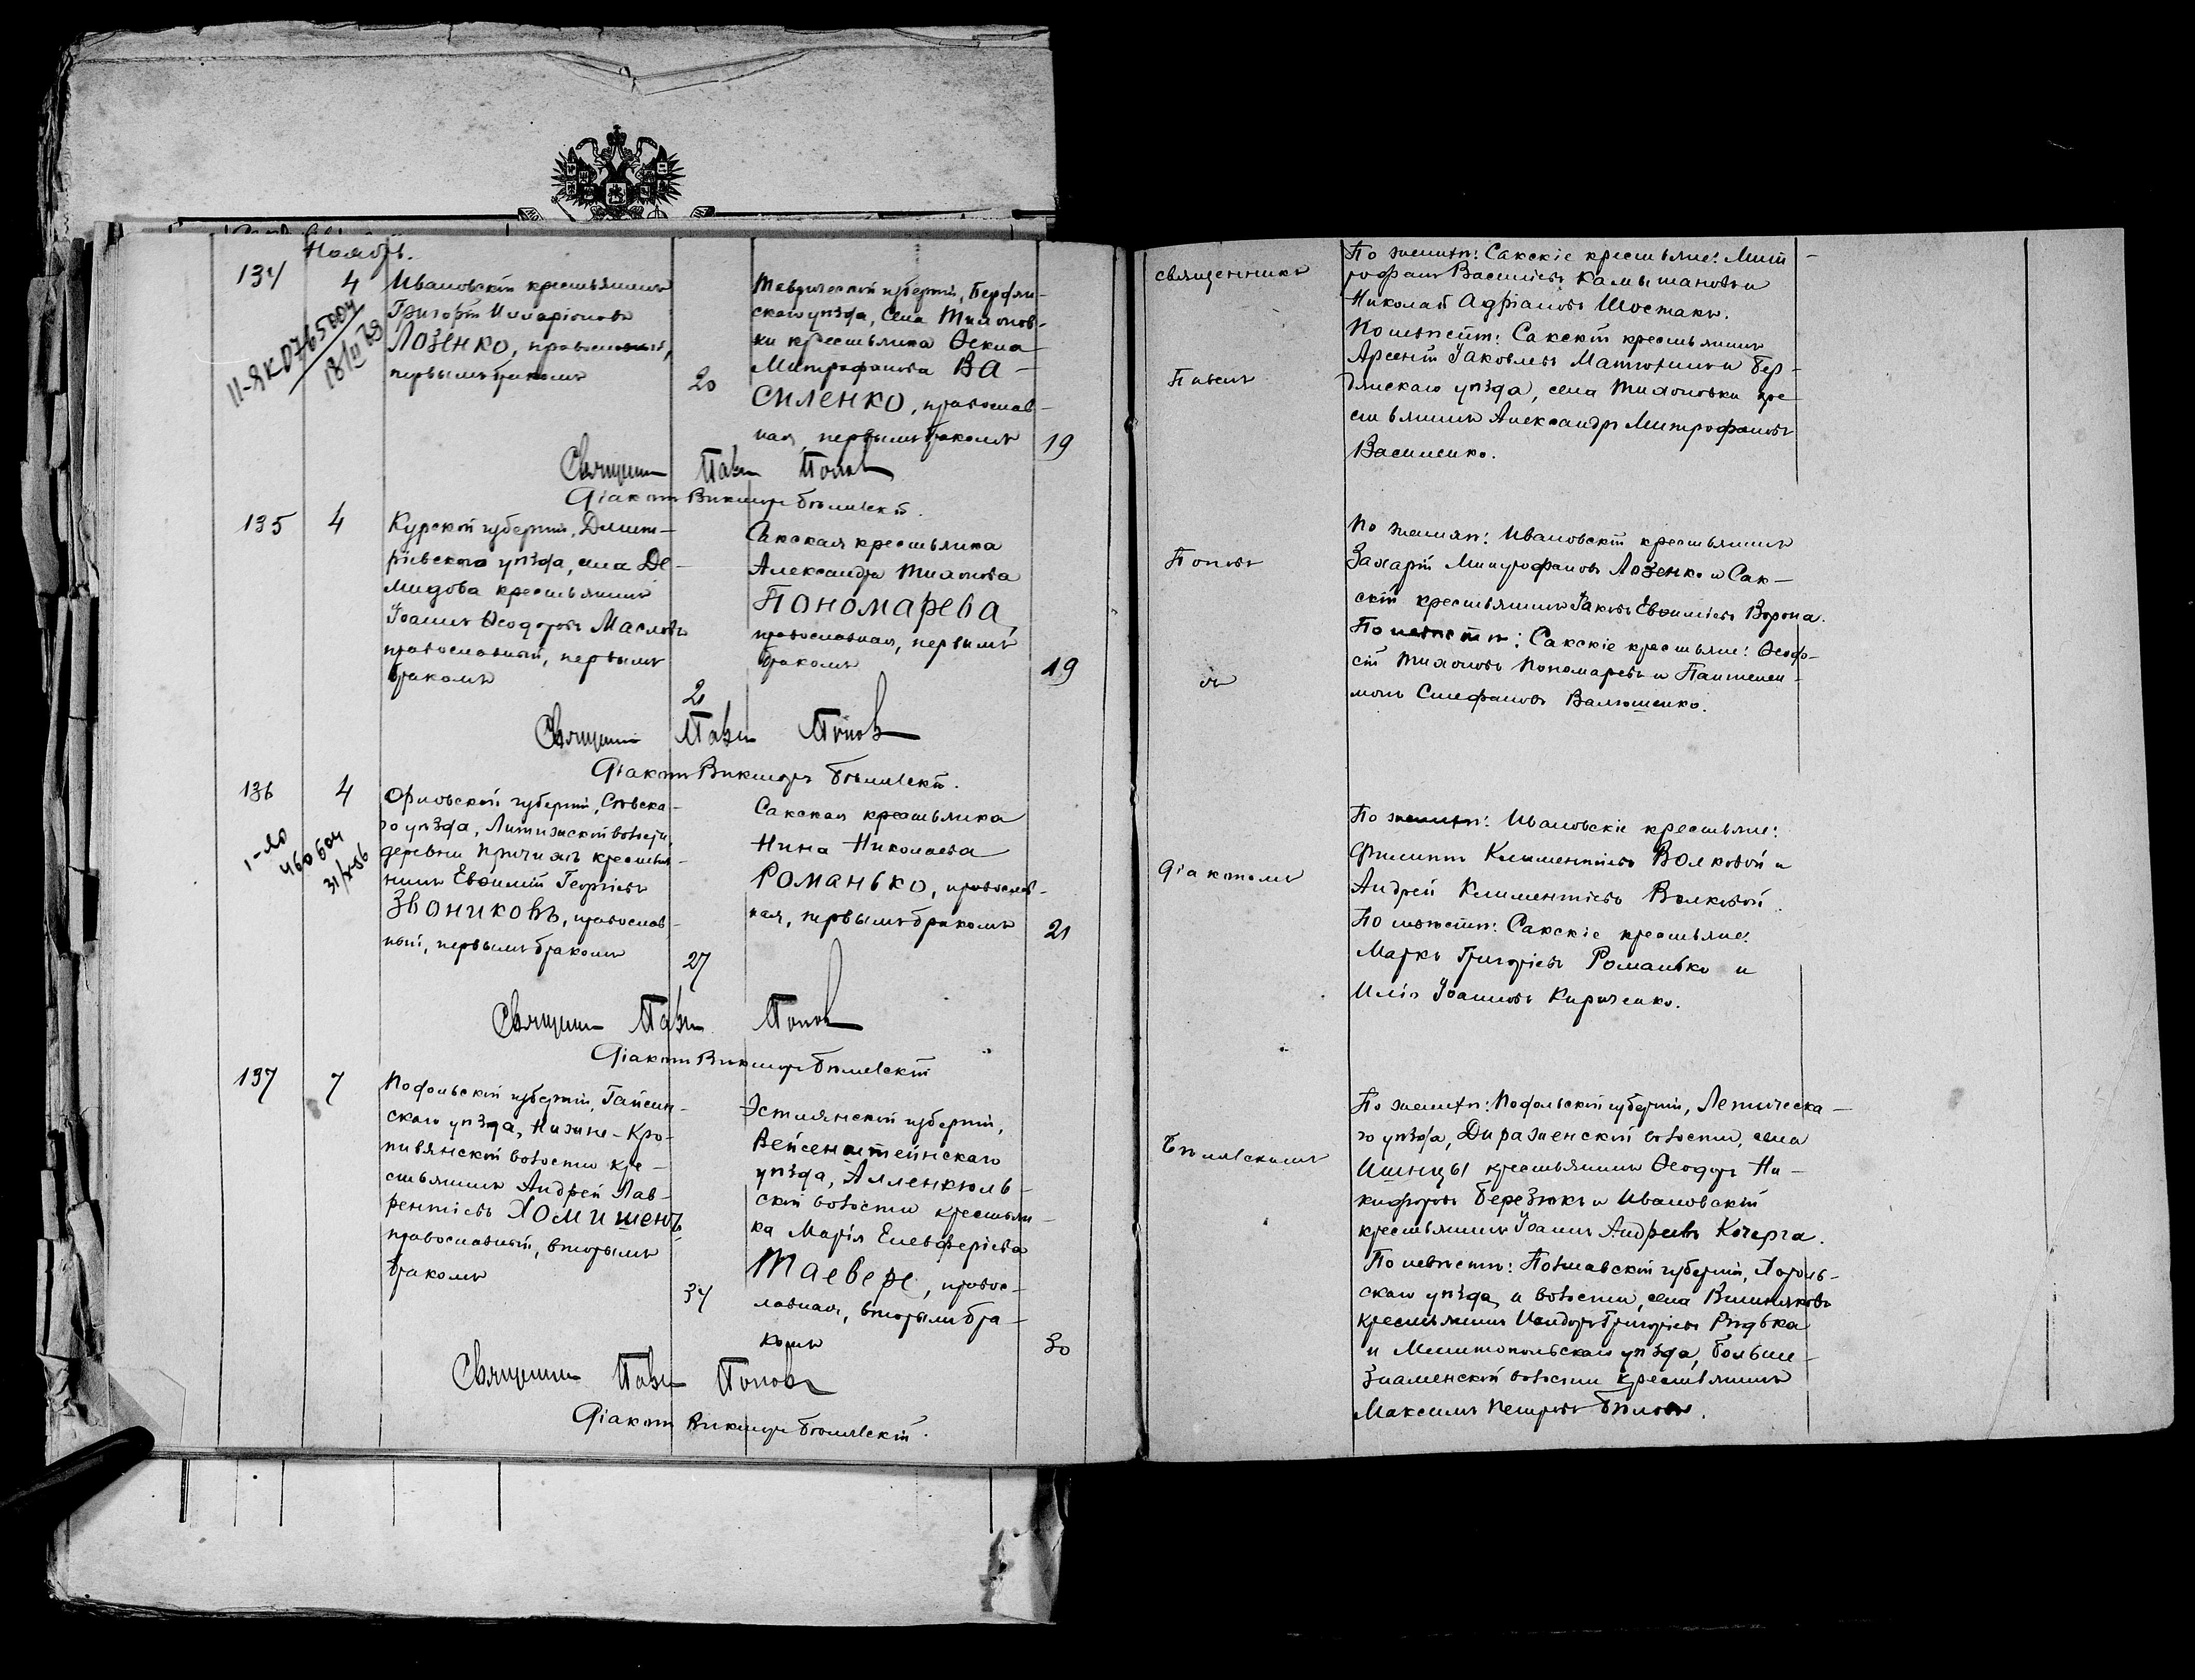 Ноябрь.
134
4
Ивановскій крестьянинъ
Григорій Иларіоновъ
Лозенко, православный,
первымъ бракомъ
20
Таврической губерніи, Бердян-
скаго уѣзда, села Тихонов-
ки крестьянка Ѳекла
Митрофанова Ва-
силенко, православ-
ная, первымъ бракомъ
19
18/II 69
Священникъ Павелъ Поповъ
Діаконъ Викторъ Бѣлявскій.
135
4
Курской губерніи, Дмит-
ріевскаго уѣзда, села Де-
мидова крестьянинъ
Іоаннъ Ѳеодоровъ Масловъ
православный, первымъ
бракомъ
Сакская крестьянка
Александра Тихонова
Пономарева,
православная, первымъ
бракомъ
19
Священникъ Павелъ Поповъ
Діаконъ Викторъ Бѣлявскій.
136
4
Орловской губерніи, Сѣвска-
го уѣзда, Литижской волости,
деревни Причижъ крестья-
нинъ Евѳимій Георгіевъ
Звониковъ, православ-
ный, первымъ бракомъ
27
Сакская крестьянка
Нина Николаева
Романько, православ-
ная, первымъ бракомъ
21
460604
Священникъ Павелъ Поповъ
Діаконъ Викторъ Бѣлявскій
137
7
Подольской губерніи, Гайсин-
скаго уѣзда, Нижне-Кро-
пивянской волости кре-
стьянинъ Андрей Лав-
рентіевъ Хомишенъ,
православный, вторымъ
бракомъ
34
Эстлянской губерніи,
Вейсенштейнскаго
уѣзда, Алленкюль-
ской волости крестьян-
ка Марія Елевферіева
Таевере, правос-
лавная, вторымъ бра-
комъ
30
Священникъ Павелъ Поповъ
Діаконъ Викторъ Бѣлявскій.
священникъ
Павелъ
Поповъ
съ
діакономъ
Бѣлявскимъ
По женихѣ: Сакскіе крестьяне: Мит-
рофанъ Василіевъ Камышановъ и
Николай Адріановъ Шостакъ.
По невѣстѣ: Сакскій крестьянинъ
Арсеній Іаковлевъ Матюшинъ и Бер-
дянскаго уѣзда, села Тихоновки кре-
стьянинъ Александръ Митрофановъ
Василенко.
По женихѣ: Ивановскій крестьянинъ
Захарій Митрофановъ Лозенко и Сак-
скій крестьянинъ Іаковъ Евѳиміевъ Ворона.
По невѣстѣ: Сакскіе крестьяне: Ѳеодо-
сій Тихоновъ Пономаревъ и Пантелей-
монъ Стефановъ Валюшенко.
По женихѣ: Ивановскіе крестьяне:
Филиппъ Климентіевъ Волковой и
Андрей Климентіевъ Волковой.
По невѣстѣ: Сакскіе крестьяне:
Маркъ Григоріевъ Романько и
Илія Іоанновъ Кириченко.
По женихѣ: Подольской губерніи, Летическа-
го уѣзда, Дираженской волости, села
крестьянинъ Ѳеодоръ Ни-
кифоровъ Березюкъ и Ивановскій
крестьянинъ Іоаннъ Андреевъ Кочерга.
По невѣстѣ: Полтавской губерніи, Хороль-
скаго уѣзда и волости, села Вишняковъ
крестьянинъ Исидоръ Григоріевъ Рѣдька
и Мелитопольскаго уѣзда, Больше-
Знаменской волости крестьянинъ
Максимъ Петровъ Бѣловъ.